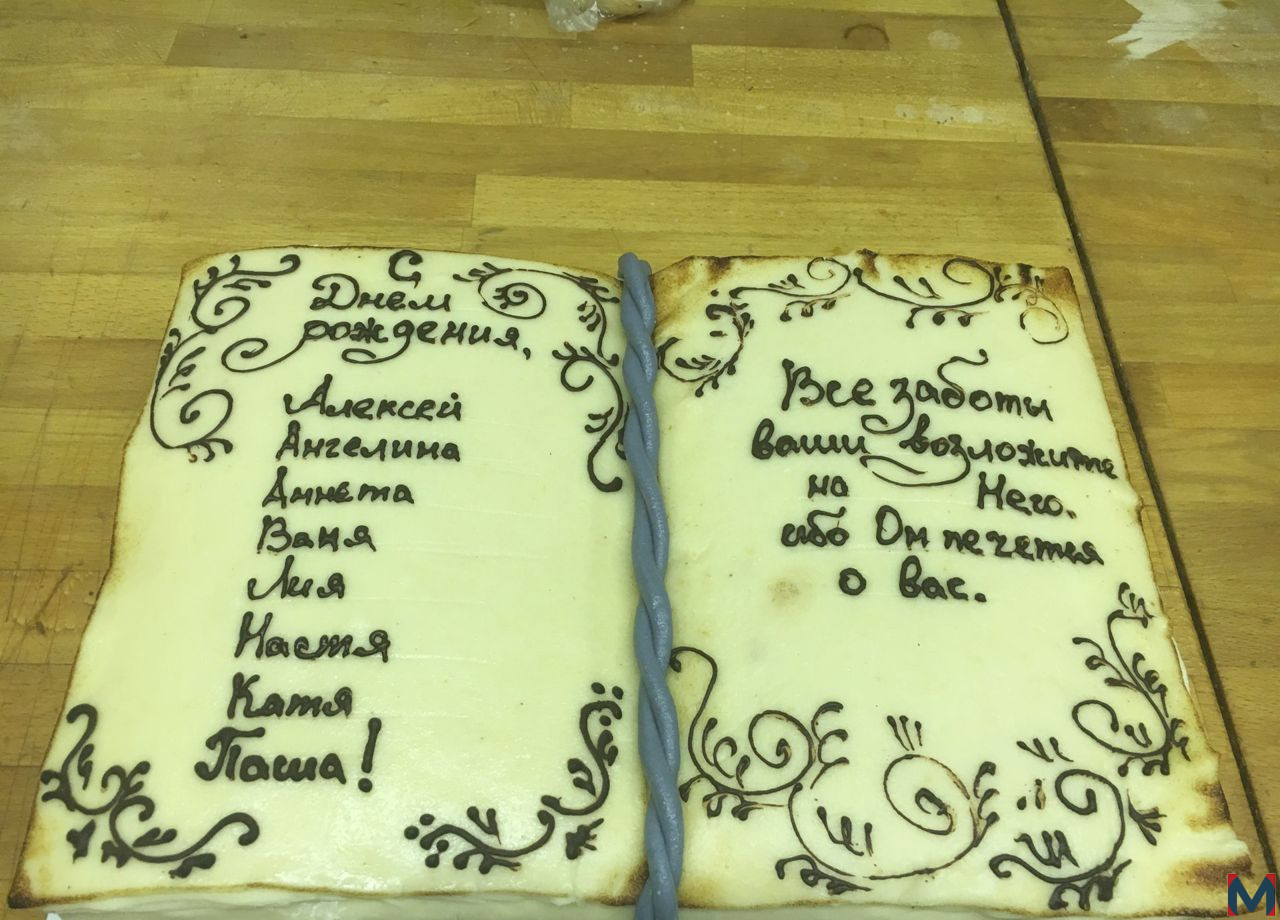 С
Днем
рождения,
Алексей
Ангелина
Аннета
Ваня
Лия
Настя
Катя
Паша!
Все заботы
ваши возложите
на Него.
ибо Он печется
о вас.
M